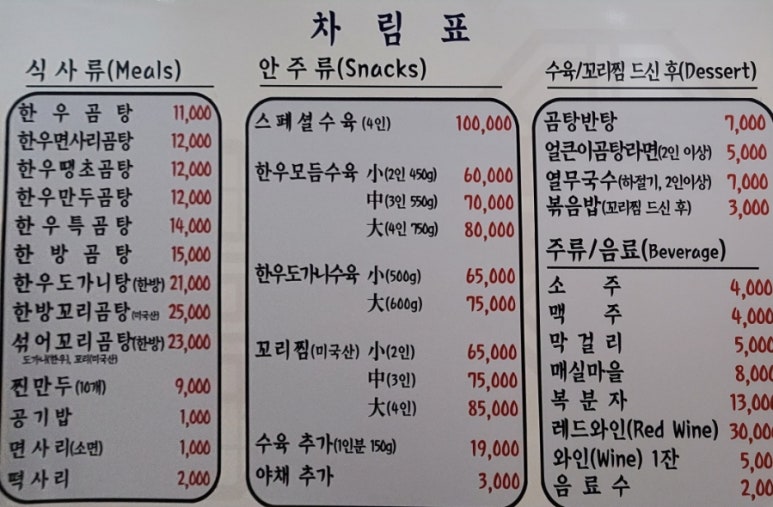 차 림 표
식 사 류(Meals)
한 우 곰 탕 11,000
한우면사리곰탕 12,000
한우땡초곰탕 12,000
한우만두곰탕 12,000
한 우 특 곰 탕 14,000
한 방 곰 탕 15,000
한우도가니탕(한방) 21,000
한방꼬리곰탕(미국산) 25,000
섞어꼬리곰탕(한방) 23,000
도가니(한우), 꼬리(미국산)
찐만두(10개) 9,000
공기밥 1,000
면 사 리(소면) 1,000
떡 사 리 2,000
안 주 류(Snacks)
스페셜수육(4인) 100,000
한우모듬수육 小(2인 450g) 60,000
中(3인 550g) 70,000
大(4인 750g) 80,000
한우도가니수육 小(500g) 65,000
大(600g) 75,000
꼬리찜(미국산) 小(2인) 65,000
中(3인) 75,000
大(4인) 85,000
수육 추가(1인분 150g) 19,000
야채 추가 3,000
수육/꼬리찜 드신 후(Dessert)
곰탕반탕 7,000
얼큰이곰탕라면(2인 이상) 5,000
열무국수(하절기, 2인이상) 7,000
볶음밥(꼬리찜 드신 후) 3,000
주류/음료(Beverage)
소 주 4,000
맥 주 4,000
막 걸 리 5,000
매실마을 8,000
복 분 자 13,000
레드와인(Red Wine) 30,00
와인(Wine) 1잔 5,00
음 료 수 2,00